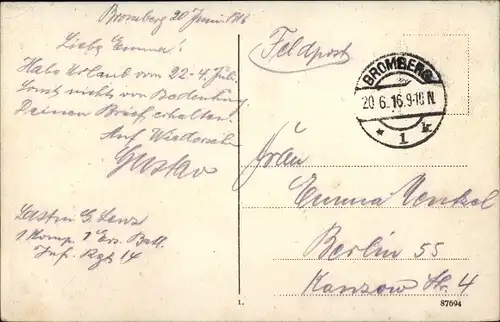 Bromberg 20 Juni 1916
Liebe Emma!
Habe Urlaub vom 22-4. Juli.
Sonst nichts von Bedeutung
Deinen Brief erhalten.
Auf Wiedersehn
Gustav
G. Lenz
1 Komp. 1 Ers. Batl.
Inf. Rgt 14
Feldpost
BROMBERG
20.6.16.9-10 N.
* 1 k
Frau
Emma Henkel
Berlin 55
Kanzow Str. 4
1.
87694